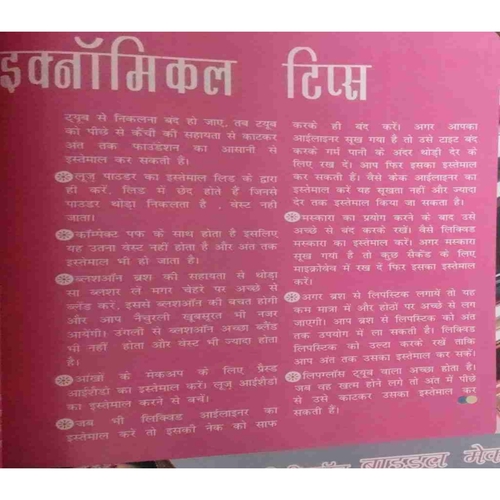 इक्नॉमिकल टिप्स
ट्यूब से निकलना बंद हो जाए, तब टयूब
को पीछे से कैंची की सहायता से काटकर
अंत तक फाउंडेशन का आसानी से
इस्तेमाल कर सकती हैं।
लूज़ पाउडर का इस्तेमाल लिड के द्वारा
ही करें, लिड में छेद होते हैं जिनसे
पाउडर थोड़ा निकलता है , वेस्ट नहीं
जाता।
कॉम्पैक्ट पफ के साथ होता है इसलिए
यह उतना वेस्ट नहीं होता है और अंत तक
इस्तेमाल भी हो जाता है।
ब्लशऑन ब्रश की सहायता से थोड़ा
सा ब्लशर लें मगर चेहरे पर अच्छे से
ब्लेंड करें, इससे ब्लशऑन की बचत होगी
और आप नैचुरली खूबसूरत भी नजर
आयेंगी। उंगली से ब्लशऑन अच्छा ब्लैंड
भी नहीं होता और वेस्ट भी ज्यादा होता
है।
आंखों के मेकअप के लिए प्रैस्ड
आईशैडो का इस्तेमाल करें। लूज़ आईशैडो
का इस्तेमाल करने से बचें।
जब भी लिक्विड आईलाइनर का
इस्तेमाल करें तो इसकी नेक को साफ
करके ही बंद करें। अगर आपका
आईलाइनर सूख गया है तो उसे टाइट बंद
करके गर्म पानी के अंदर थोड़ी देर के
लिए रख दें। आप फिर इसका इस्तेमाल
कर सकती हैं। वैसे केक आईलाइनर का
इस्तेमाल करें यह सूखता नहीं और ज्यादा
देर तक इस्तेमाल किया जा सकता है।
मस्कारा का प्रयोग करने के बाद उसे
अच्छे से बंद करके रखें। वैसे लिक्विड
मस्कारा का इस्तेमाल करें। अगर मस्कारा
सूख गया है तो कुछ सैकंड के लिए
माइक्रोवेव में रख दें फिर इसका इस्तेमाल
करें।
अगर ब्रश से लिपस्टिक लगायें तो यह
कम मात्रा में और होठों पर अच्छे से लग
जाएगी। आप ब्रश से लिपस्टिक को अंत
तक उपयोग में ला सकती हैं। लिक्विड
लिपस्टिक को उल्टा करके रखें ताकि
आप अंत तक उसका इस्तेमाल कर सकें।
लिपग्लॉस ट्यूब वाला अच्छा होता है।
जब वह खत्म होने लगे तो अंत में पीछे
से उसे काटकर उसका इस्तेमाल कर
सकती हैं।
ब्राइडल मेक